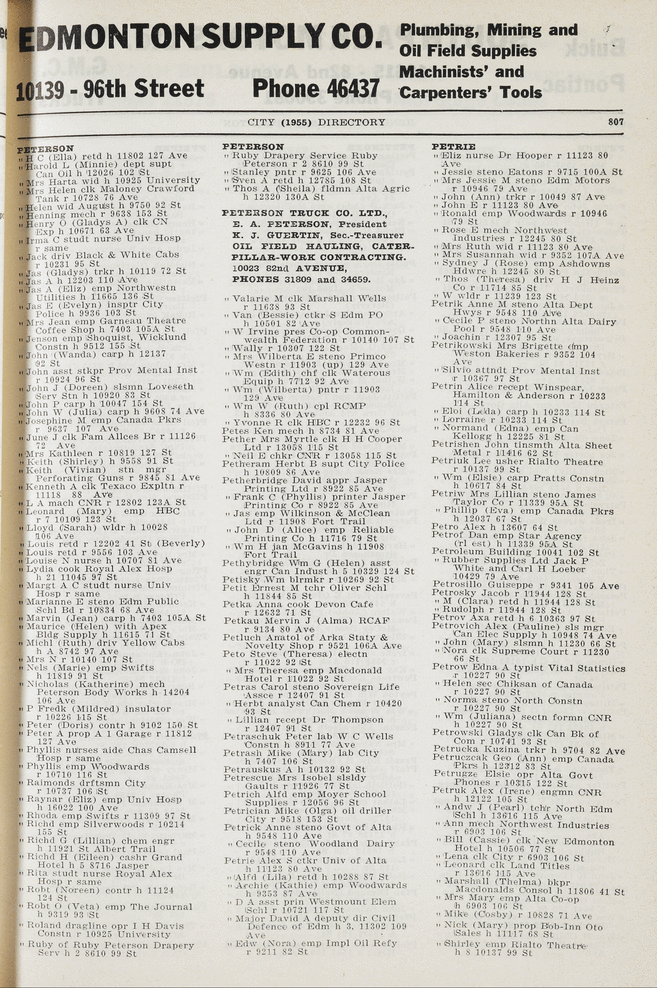 EDMONTON SUPPLY CO.
10139 - 96th Street Phone 46437
Plumbing, Mining and
Oil Field Supplies
Machinists' and
Carpenters' Tools
CITY (1955) DIRECTORY 807
PETERSON
" H C (Ella) retd h 11802 127 Ave
" Harold L (Minnie) dept supt
Can Oil h 12026 102 St
" Mrs Harta wid h 10925 University
" Mrs Helen clk Maloney Crawford
Tank r 10728 76 Ave
" Helen wid August h 9750 92 St
" Henning mech r 9638 153 St
" Henry O (Gladys A) clk CN
Exp h 10671 63 Ave
" Irma C studt nurse Univ Hosp
r same
" Jack driv Black & White Cabs
r 10231 95 St
" Jas (Gladys) trkr h 10119 72 St
" Jas A h 12203 110 Ave
" Jas A (Eliz) emp Northwestn
Utilities h 11665 136 St
" Jas E (Evelyn) insptr City
Police h 9936 103 St
" Mrs Jean emp Garneau Theatre
Coffee Shop h 7403 105A St
" Jenson emp Shoquist, Wicklund
Constn h 9512 155 St
" John (Wanda) carp h 12137
92 St
" John asst stkpr Prov Mental Inst
r 10924 96 St
" John J (Doreen) slsmn Loveseth
Serv Stn h 10920 83 St
" John P carp h 10047 154 St
" John W (Julia) carp h 9608 74 Ave
" Josephine M emp Canada Pkrs
r 9637 107 Ave
" June J clk Fam Allces Br r 11126
72 Ave
" Mrs Kathleen r 10819 127 St
" Keith (Shirley) h 9558 91 St
" Keith (Vivian) stn mgr
Perforating Guns r 9845 81 Ave
" Kenneth A clk Texaco Expltn r
11118 88 Ave
" L A mach CNR r 12802 123A St
" Leonard (Mary) emp HBC
r 7 10109 123 St
" Lloyd (Sarah) wldr h 10028
106 Ave
" Louis retd r 12202 41 St (Beverly)
" Louis retd r 9556 103 Ave
" Louise N nurse h 10707 81 Ave
" Lydia cook Royal Alex Hosp
h 21 11045 97 St
" Margt A C studt nurse Univ
Hosp r same
" Marianne E steno Edm Public
Schl Bd r 10834 68 Ave
" Marvin (Jean) carp h 7403 105A St
" Maurice (Helen) with Apex
Bldg Supply h 11615 71 St
" Michl (Ruth) driv Yellow Cabs
h A 8742 97 Ave
" Mrs N r 10140 107 St
" Nels (Marie) emp Swifts
h 11819 91 St
" Nicholas (Katherine) mech
Peterson Body Works h 14204
106 Ave
" P Fredk (Mildred) insulator
r 10226 115 St
" Peter (Doris) contr h 9102 150 St
" Peter A prop A 1 Garage r 11812
127 Ave
" Phyllis nurses aide Chas Camsell
Hosp r same
" Phyllis emp Woodwards
r 10710 116 St
" Raimonds drftsmn City
r 10737 106 St
" Raynar (Eliz) emp Univ Hosp
h 16022 100 Ave
" Rhoda emp Swifts r 11309 97 St
" Richd emp Silverwoods r 10214
155 St
" Richd G (Lillian) chem engr
h 11921 St Albert Trail
" Richd H (Eileen) cashr Grand
Hotel h 5 8716 Jasper
" Rita studt nurse Royal Alex
Hosp r same
" Robt (Noreen) contr h 11124
124 St
" Robt O (Veta) emp The Journal
h 9319 93 St
" Roland dragline opr I H Davis
Constn r 10925 University
" Ruby of Ruby Peterson Drapery
Serv h 2 8610 99 St
PETERSON
" Ruby Drapery Service Ruby
Peterson r 2 8610 99 St
" Stanley pntr r 9625 106 Ave
" Sven A retd h 12785 108 St
" Thos A (Sheila) fldmn Alta Agric
h 12320 130A St
PETERSON TRUCK CO. LTD.,
E. A. PETERSON, President
K. J. GUERTIN, Sec.-Treasurer
OIL FIELD HAULING, CATER-
PILLAR-WORK CONTRACTING.
10023 82nd AVENUE,
PHONES 31809 and 34659.
" Valarie M clk Marshall Wells
r 11638 93 St
" Van (Bessie) ctkr S Edm PO
h 10501 82 Ave
" W Irvine pres Co-op Common-
wealth Federation r 10140 107 St
" Wally r 10307 122 St
" Mrs Wilberta E steno Primco
Westn r 11903 (up) 129 Ave
" Wm (Edith) chf clk Waterous
Equip h 7712 92 Ave
" Wm (Wilberta) pntr r 11903
129 Ave
" Wm W (Ruth) cpl RCMP
h 8336 80 Ave
" Yvonne R clk HBC r 12232 96 St
Petes Ken mech h 8734 81 Ave
Pether Mrs Myrtle clk H H Cooper
Ltd r 13058 115 St
" Neil E chkr CNR r 13058 115 St
Petheram Herbt B supt City Police
h 10809 86 Ave
Petherbridge David appr Jasper
Printing Ltd r 8922 85 Ave
" Frank C (Phyllis) printer Jasper
Printing Co r 8922 85 Ave
" Jas emp Wilkinson & McClean
Ltd r 11908 Fort Trail
" John D (Alice) emp Reliable
Printing Co h 11716 79 St
" Wm H jan McGavins h 11908
Fort Trail
Pethybridge Wm G (Helen) asst
engr Can Indust h 5 10329 124 St
Petisky Wm blrmkr r 10269 92 St
Petit Ernest M tchr Oliver Schl
h 11844 85 St
Petka Anna cook Devon Cafe
r 12632 71 St
Petkau Mervin J (Alma) RCAF
r 9134 80 Ave
Petluch Amatol of Arka Staty &
Novelty Shop r 9521 106A Ave
Peto Steve (Theresa) electn
r 11022 92 St
" Mrs Theresa emp Macdonald
Hotel r 11022 92 St
Petras Carol steno Sovereign Life
Assce r 12407 91 St
" Herbt analyst Can Chem r 10420
93 St
" Lillian recept Dr Thompson
r 12407 91 St
Petraschuk Peter lab W C Wells
Constn h 8911 77 Ave
Petrash Mike (Mary) lab City
h 7407 106 St
Petrauskus A h 10132 92 St
Petrescue Mrs Isobel slsldy
Gaults r 11926 77 St
Petrich Alfd emp Moyer School
Supplies r 12056 96 St
Petrician Mike (Olga) oil driller
City r 9518 153 St
Petrick Anne steno Govt of Alta
h 9548 110 Ave
" Cecile steno Woodland Dairy
r 9548 110 Ave
Petrie Alex S ctkr Univ of Alta
h 11123 80 Ave
" Alfd (Lila) retd h 10288 87 St
" Archie (Kathie) emp Woodwards
h 9353 87 Ave
" D A asst prin Westmount Elem
Schl r 10721 117 St
" Major David A deputy dir Civil
Defence of Edm h 3, 11302 109
Ave
" Edw (Nora) emp Impl Oil Refy
r 9211 82 St
PETRIE
" Eliz nurse Dr Hooper r 11123 80
Ave
" Jessie steno Eatons r 9715 100A St
" Mrs Jessie M steno Edm Motors
r 10946 79 Ave
" John (Ann) trkr r 10049 87 Ave
" John E r 11123 80 Ave
" Ronald emp Woodwards r 10946
79 St
" Rose E mech Northwest
Industries r 12245 80 St
" Mrs Ruth wid r 11123 80 Ave
" Mrs Susannah wid r 9352 107A Ave
" Sydney J (Rose) emp Ashdowns
Hdwre h 12245 80 St
" Thos (Theresa) driv H J Heinz
Co r 11714 85 St
" W wldr r 11239 123 St
Petrik Anne M steno Alta Dept
Hwys r 9548 110 Ave
" Cecile P steno Northn Alta Dairy
Pool r 9548 110 Ave
" Joachin r 12307 95 St
Petrikowski Mrs Brigette emp
Weston Bakeries r 9352 104
Ave
" Silvio attndt Prov Mental Inst
r 10367 97 St
Petrin Alice recept Winspear,
Hamilton & Anderson r 10233
114 St
" Eloi (Leda) carp h 10233 114 St
" Lorraine r 10233 114 St
" Normand (Edna) emp Can
Kellogg h 12225 81 St
Petrishen John tinsmth Alta Sheet
Metal r 11416 62 St
Petriuk Lee usher Rialto Theatre
r 10137 99 St
" Wm (Elsie) carp Pratts Constn
h 10617 84 St
Petriw Mrs Lillian steno James
Taylor Co r 11339 95A St
" Phillip (Eva) emp Canada Pkrs
h 12037 67 St
Petro Alex h 13607 64 St
Petrof Dan emp Star Agency
(rl est) h 11339 95A St
Petroleum Building 10041 102 St
" Rubber Supplies Ltd Jack P
White and Carl H Loeber
10429 79 Ave
Petrosillo Guiseppe r 9341 105 Ave
Petrosky Jacob r 11944 128 St
" M (Clara) retd h 11944 128 St
" Rudolph r 11944 128 St
Petrov Axa retd h 6 10363 97 St
Petrovich Alex (Pauline) sls mgr
Can Elec Supply h 10948 74 Ave
" John (Mary) slsmn h 11230 66 St
" Nora clk Supreme Court r 11230
66 St
Petrow Edna A typist Vital Statistics
r 10227 90 St
" Helen sec Chiksan of Canada
r 10227 90 St
" Norma steno North Constn
r 10227 90 St
" Wm (Juliana) sectn formn CNR
h 10227 90 St
Petrowski Gladys clk Can Bk of
Com r 10741 93 St
Petrucka Kuzina trkr h 9704 82 Ave
Petruczeak Geo (Ann) emp Canada
Pkrs h 12312 83 St
Petrugze Elsie opr Alta Govt
Phones r 10315 122 St
Petruk Alex (Irene) engmn CNR
h 12122 105 St
" Andw J (Pearl) tchr North Edm
Schl h 13616 115 Ave
" Ann mech Northwest Industries
r 6903 106 St
" Bill (Cassie) clk New Edmonton
Hotel h 10506 77 St
" Lena clk City r 6903 106 St
" Leonard clk Land Titles
r 13616 115 Ave
" Marshall (Thelma) bkpr
Macdonalds Consol h 11806 41 St
" Mrs Mary emp Alta Co-op
h 6903 106 St
" Mike (Cosby) r 10828 71 Ave
" Nick (Mary) prop Bob-Inn Oto
Sales h 11117 68 St
" Shirley emp Rialto Theatre
h 8 10137 99 St